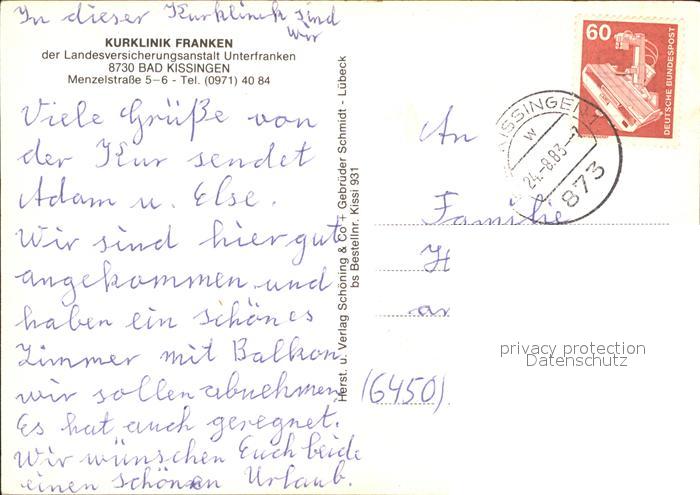 In dieser Kurklinik sind
wir
KURKLINIK FRANKEN
der Landesversicherungsanstalt Unterfranken
8730 BAD KISSINGEN
Menzelstraße 5–6 - Tel. (0971) 40 84
Viele Grüße von
der Kur sendet
Adam u. Else.
Wir sind hier gut
angekommen und
haben ein schönes
Zimmer mit Balkon
wir sollen abnehmen
Es hat auch geregnet.
Wir wünschen Euch beide
einen schönen Urlaub.
Herst. u. Verlag Schöning & Co + Gebrüder Schmidt - Lübeck
bs Bestellnr. Kissi 931
60
DEUTSCHE BUNDESPOST
KISSINGEN 1
w
24.-8.83.-
873
An
Familie
H
an
(6450)
privacy protection
Datenschutz